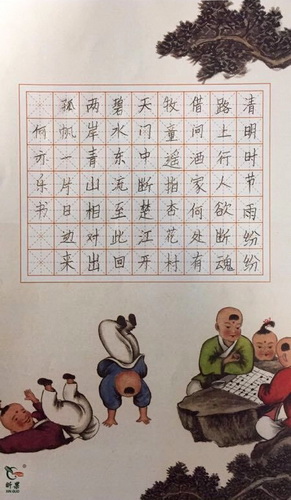 清明时节雨纷纷
路上行人欲断魂
借问酒家何处有
牧童遥指杏花村
天门中断楚江开
碧水东流至此回
两岸青山相对出
孤帆一片日边来
何亦乐书